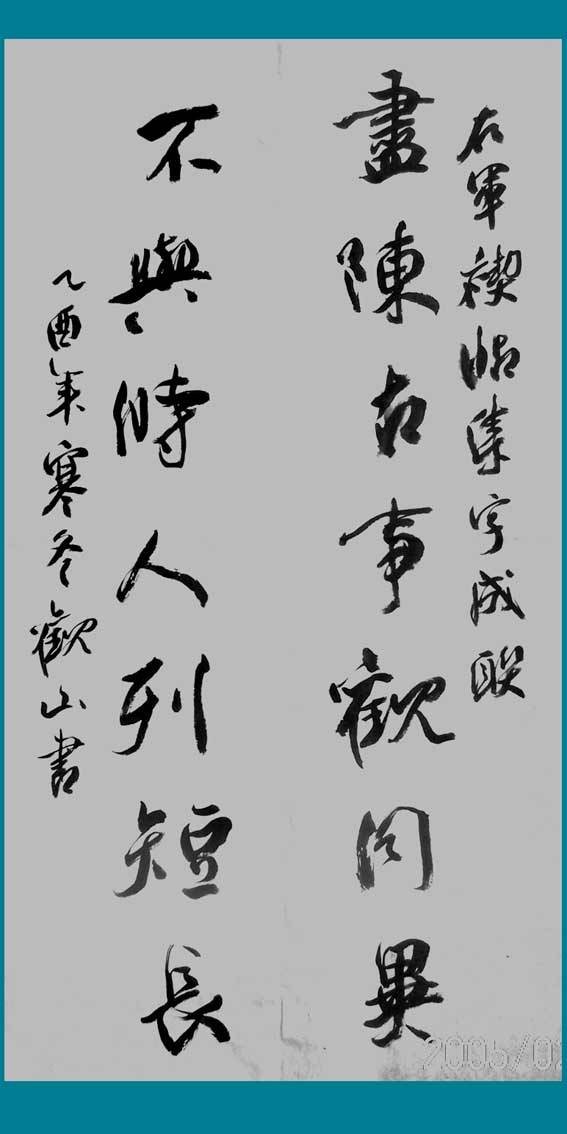 右軍禊帖集字成聯
盡陳古事觀同異
不與時人列短長
乙酉年寒冬觀山書
2005/02